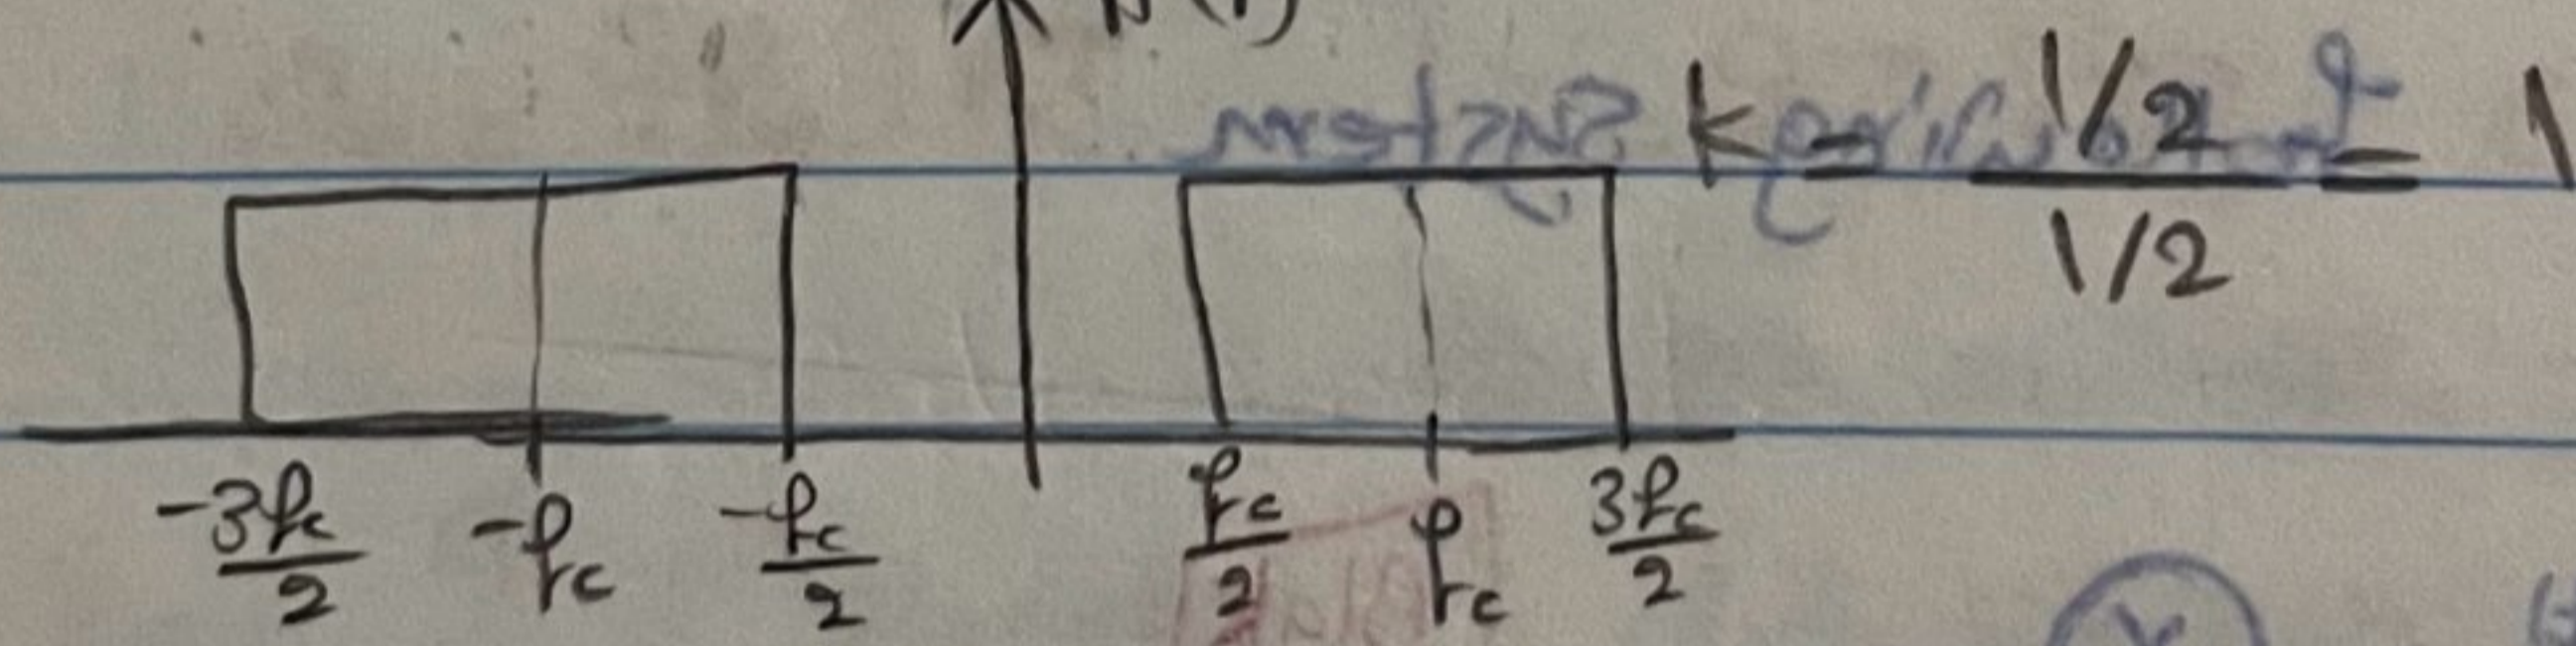 k = 1/2 / 1/2 = 1
-3fc/2 -fc -fc/2 fc/2 fc 3fc/2